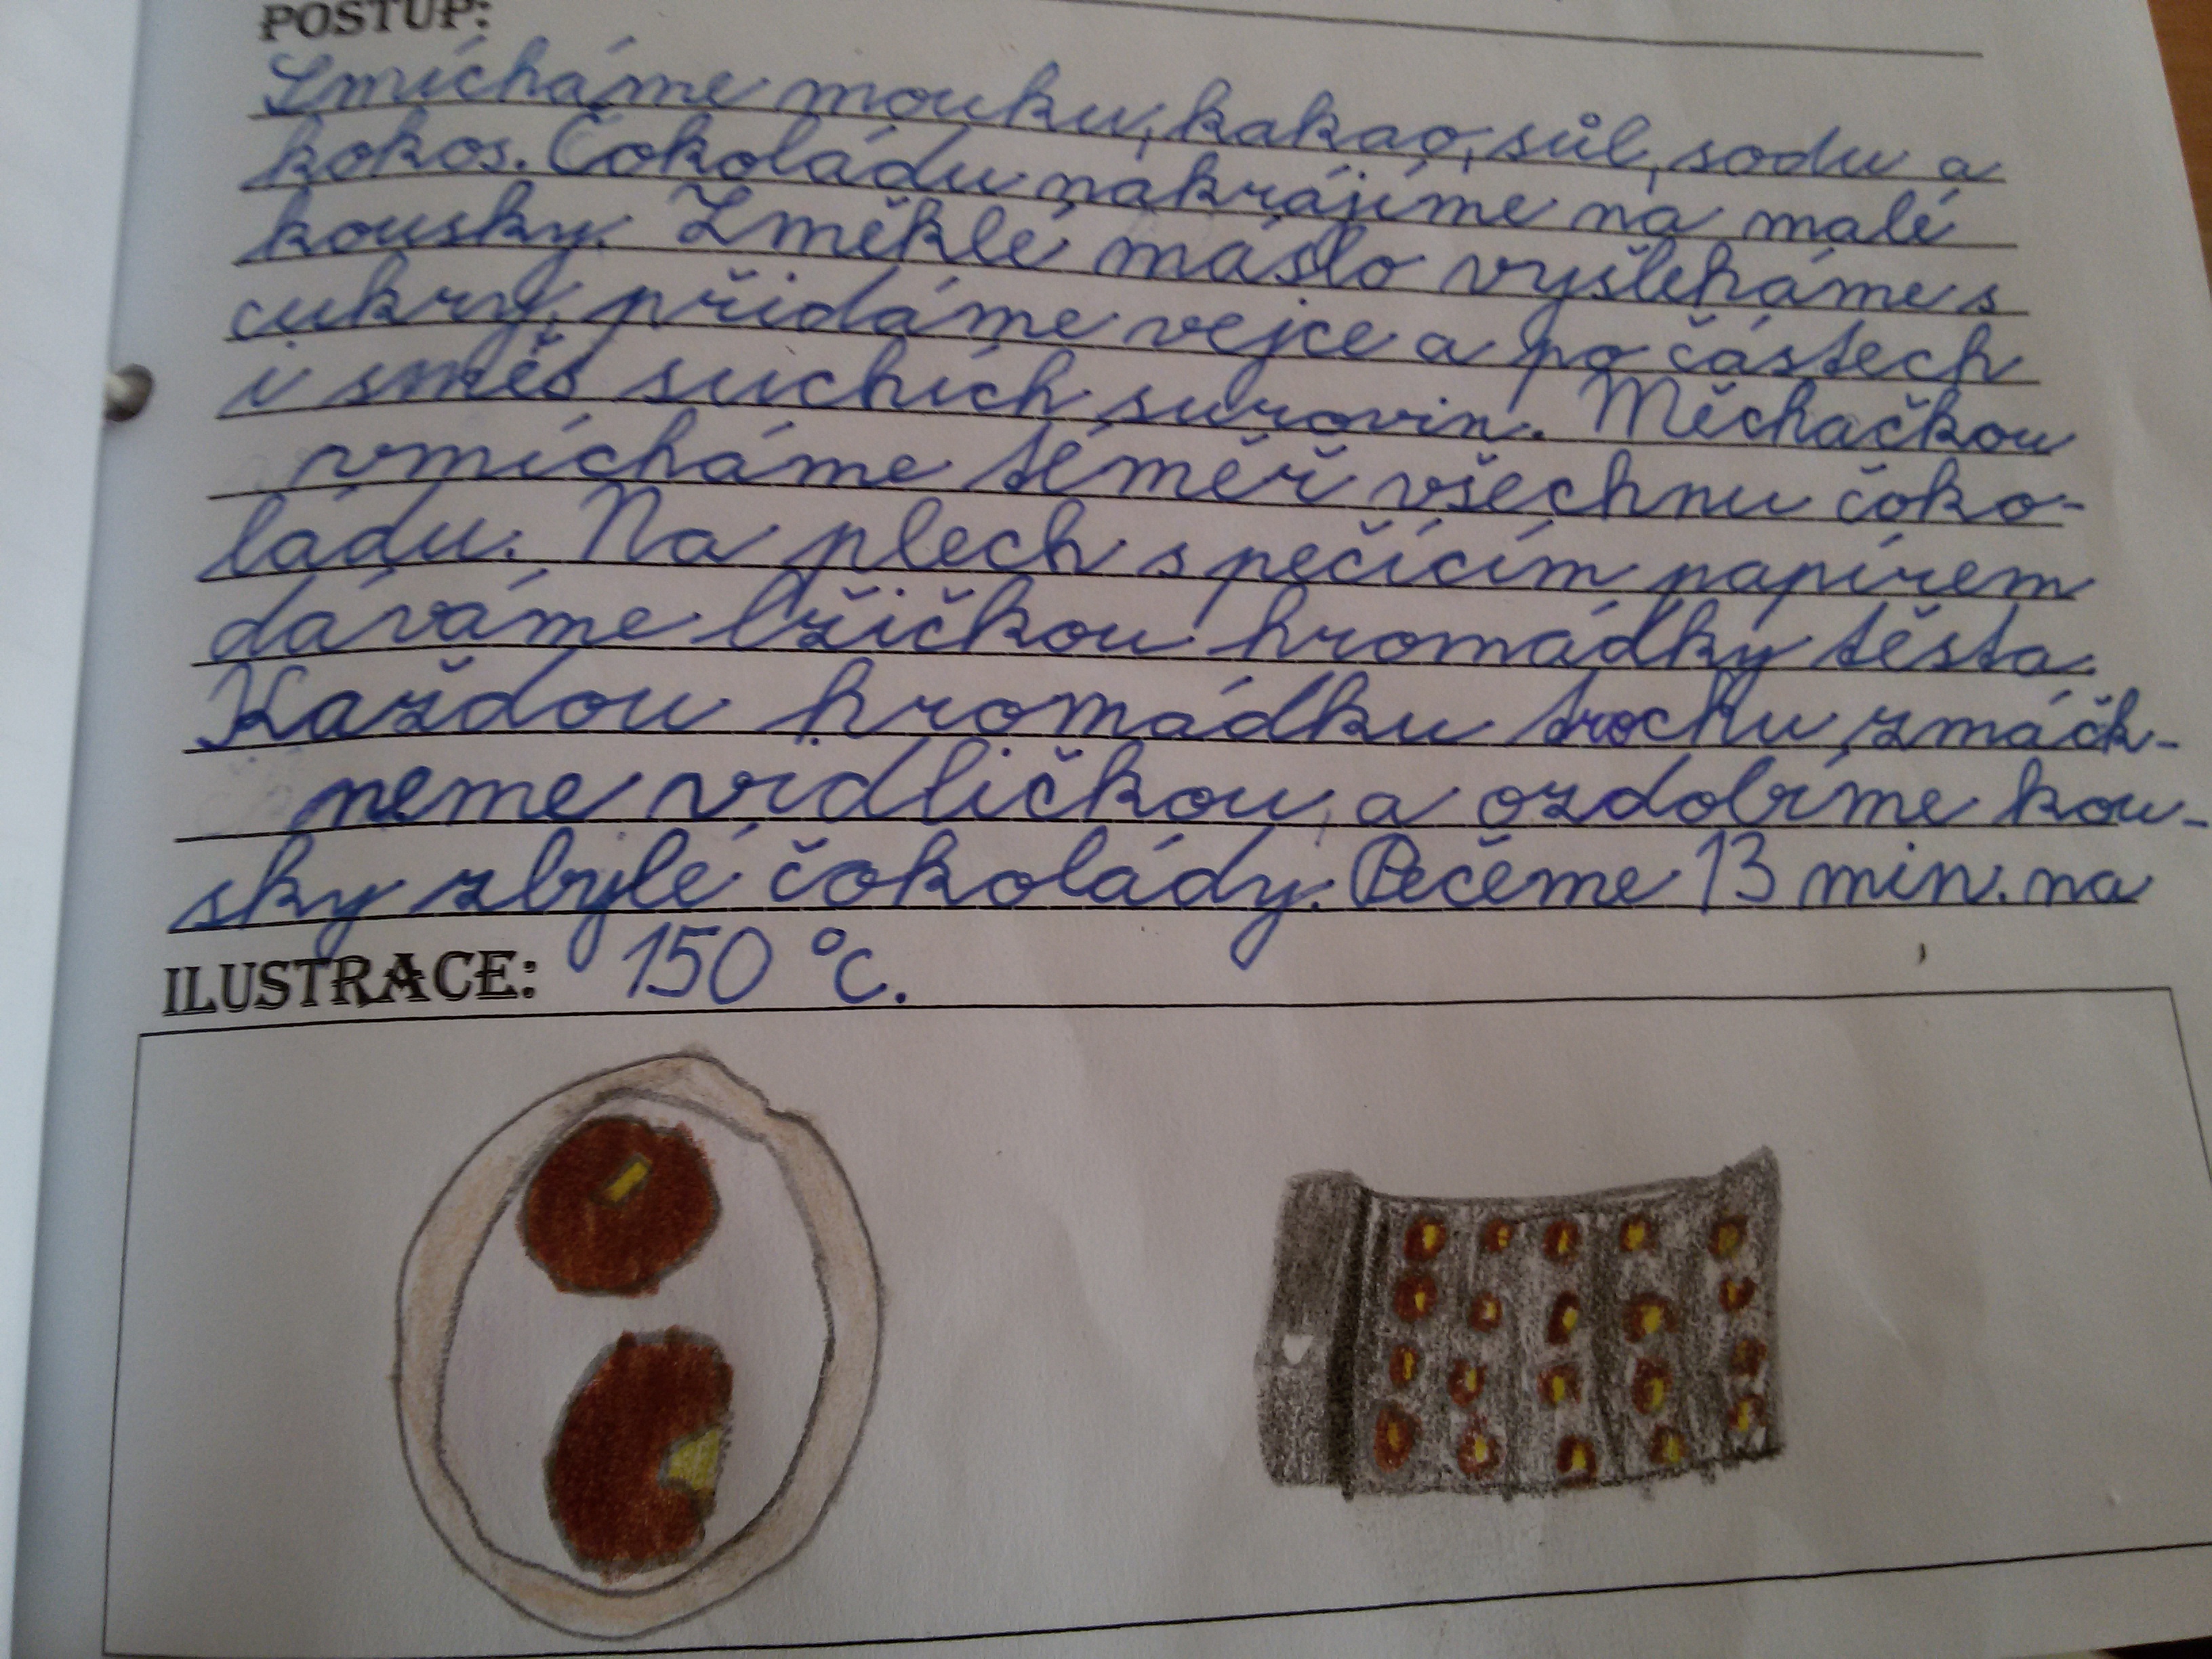 POSTUP:
Smícháme mouku, kakao, sůl, sodu a
kokos. Čokoládu nakrájíme na malé
kousky. Změklé máslo vyšleháme s
cukry, přidáme vejce a po částech
i směs suchích surovin. Měchačkou
vmícháme téměř všechnu čoko-
ládu. Na plech s pečícím papírem
dáváme lžičkou hromádky těsta.
Každou hromádku trochu zmáčk-
neme vidličkou, a ozdobíme kou-
sky zbylé čokolády. Pečeme 13 min. na
ILUSTRACE: 150 °C.